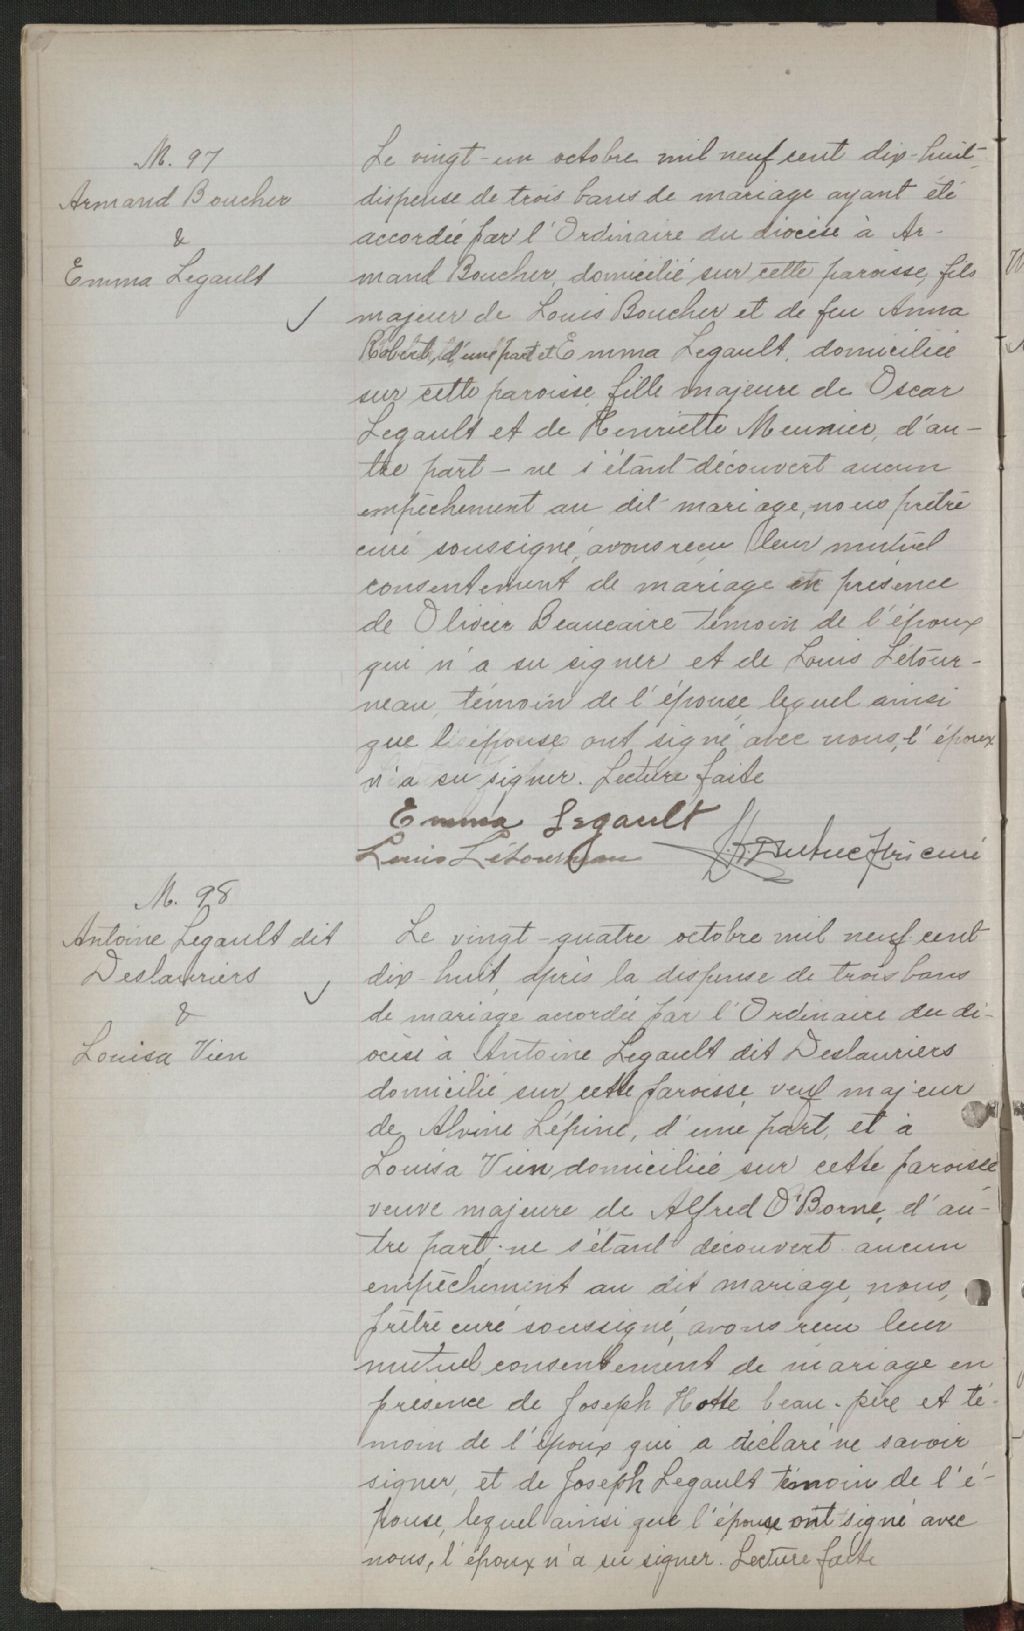 M. 97
Armand Boucher
&
Emma Legault
Le vingt-un octobre mil neuf cent dix-huit,
dispense de trois bans de mariage ayant été
accordée par l'Ordinaire du diocèse à Ar-
mand Boucher, domicilié sur cette paroisse, fils
majeur de Louis Boucher et de feu Anna
Robert, d'une part et Emma Legault, domiciliée
sur cette paroisse, fille majeure de Oscar
Legault et de Henriette Meunier, d'au-
tre part - ne s'étant découvert aucun
empêchement au dit mariage, nous prêtre
curé soussigné, avons reçu leur mutuel
consentement de mariage en présence
de Olivier Beaucaire témoin de l'époux
qui n'a su signer et de Louis Létour-
neau, témoin de l'épouse, lequel ainsi
que l'épouse ont signé avec nous, l'époux
n'a su signer. Lecture faite
Emma Legault
Louis Létourneau
Dubuc ptre curé
M. 98
Antoine Legault dit
Deslauriers
&
Louisa Vien
Le vingt-quatre octobre mil neuf cent
dix-huit, après la dispense de trois bans
de mariage accordée par l'Ordinaire du di-
ocèse à Antoine Legault dit Deslauriers
domicilié sur cette paroisse, veuf majeur
de Alvine Lépine, d'une part, et à
Louisa Vien domiciliée sur cette paroisse
veuve majeure de Alfred O'Borne, d'au-
tre part; ne s'étant découvert aucun
empêchement au dit mariage, nous,
prêtre curé soussigné, avons reçu leur
mutuel consentement de mariage en
présence de Joseph Hotte beau-père et té-
moin de l'époux qui a déclaré ne savoir
signer, et de Joseph Legault témoin de l'é-
pouse, lequel ainsi que l'épouse ont signé avec
nous, l'époux n'a su signer. Lecture faite